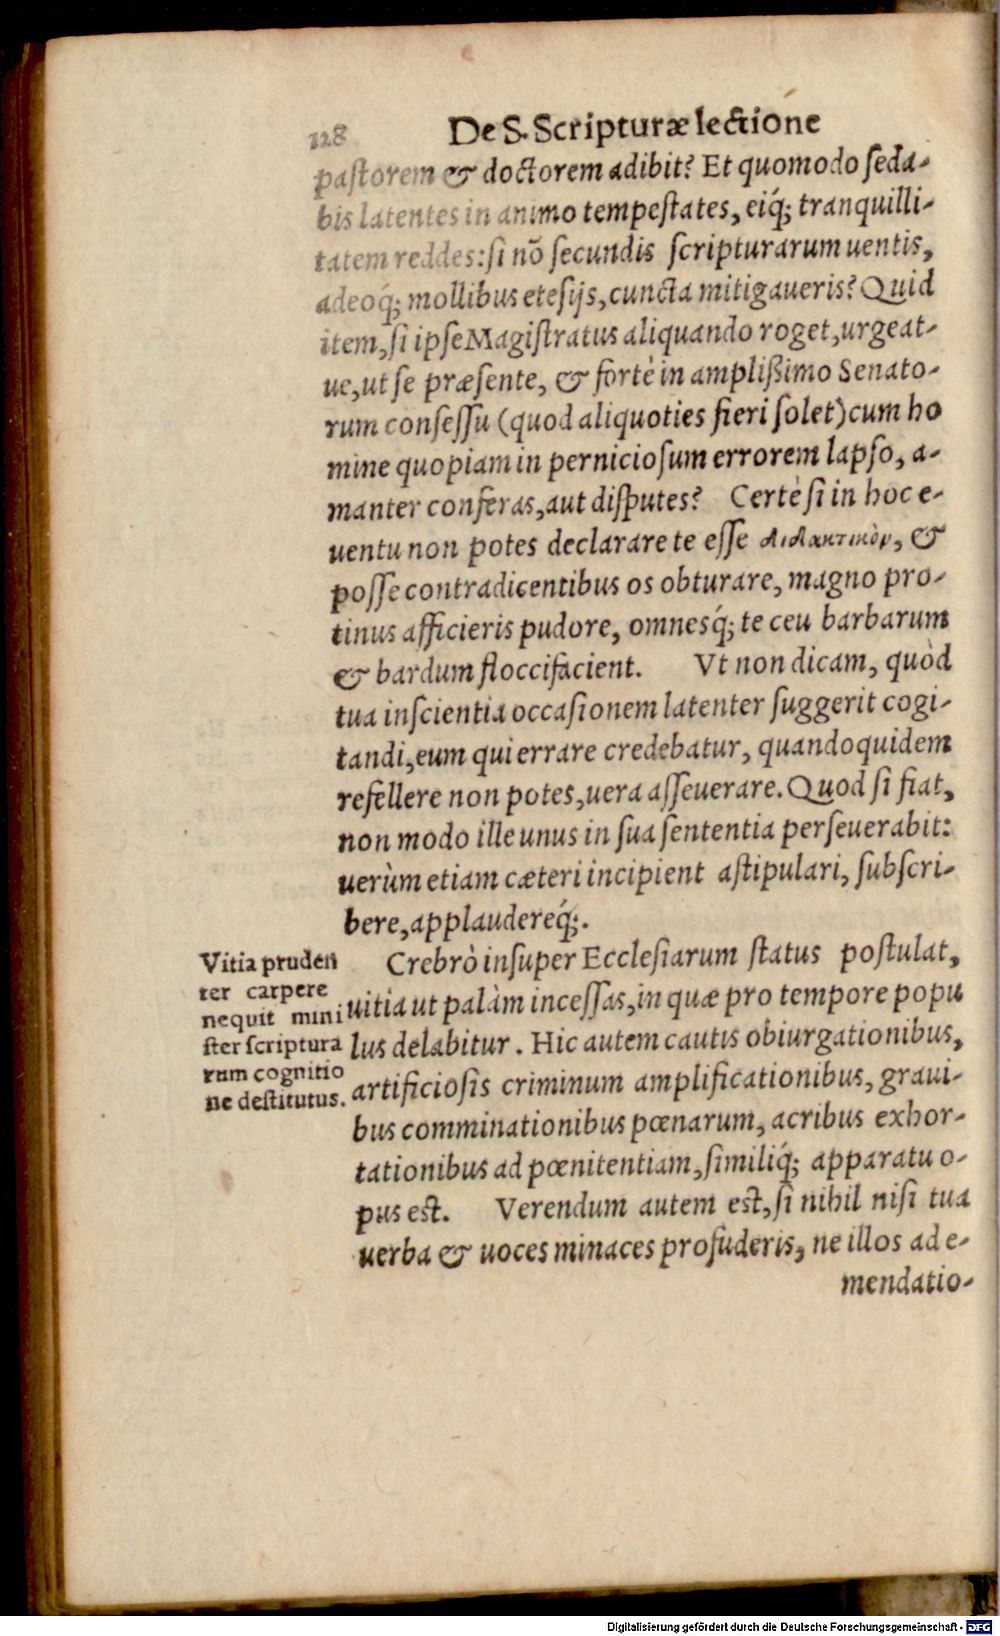 128 De S. Scripturæ lectione
paſtorem & doctorem adibit? Et quomodo ſeda-
bis latentes in animo tempeſtates, eiq́; tranquilli-
tatem reddes: ſi nõ ſecundis ſcripturarum uentis,
adeoq́; mollibus eteſijs, cuncta mitigaueris? Quid
item, ſi ipſe Magiſtratus aliquando roget, urgeat-
ue, ut ſe præſente, & fortè in ampliſſimo Senato-
rum conſeſſu (quod aliquoties fieri ſolet) cum ho
mine quopiam in pernicioſum errorem lapſo, a-
manter conferas, aut diſputes? Certè ſi in hoc e-
uentu non potes declarare te eſſe διδακτικὸν, &
poſſe contradicentibus os obturare, magno pro-
tinus afficieris pudore, omnesq́; te ceu barbarum
& bardum floccifacient. Vt non dicam, quòd
tua inſcientia occaſionem latenter ſuggerit cogi-
tandi, eum qui errare credebatur, quandoquidem
refellere non potes, uera aſſeuerare. Quod ſi fiat,
non modo ille unus in ſua ſententia perſeuerabit:
uerùm etiam cæteri incipient aſtipulari, ſubſcri-
bere, applaudereq́;.
Crebrò inſuper Eccleſiarum ſtatus poſtulat,
uitia ut palàm inceſſas, in quæ pro tempore popu
lus delabitur. Hic autem cautis obiurgationibus,
artificioſis criminum amplificationibus, graui-
bus comminationibus pœnarum, acribus exhor-
tationibus ad pœnitentiam, ſimiliq́; apparatu o-
pus eſt. Verendum autem eſt, ſi nihil niſi tua
uerba & uoces minaces profuderis, ne illos ad e-
mendatio-
Vitia pruden
ter carpere
nequit mini
ſter ſcriptura
rum cognitio
ne deſtitutus.
Digitalisierung gefördert durch die Deutsche Forschungsgemeinschaft - DFG